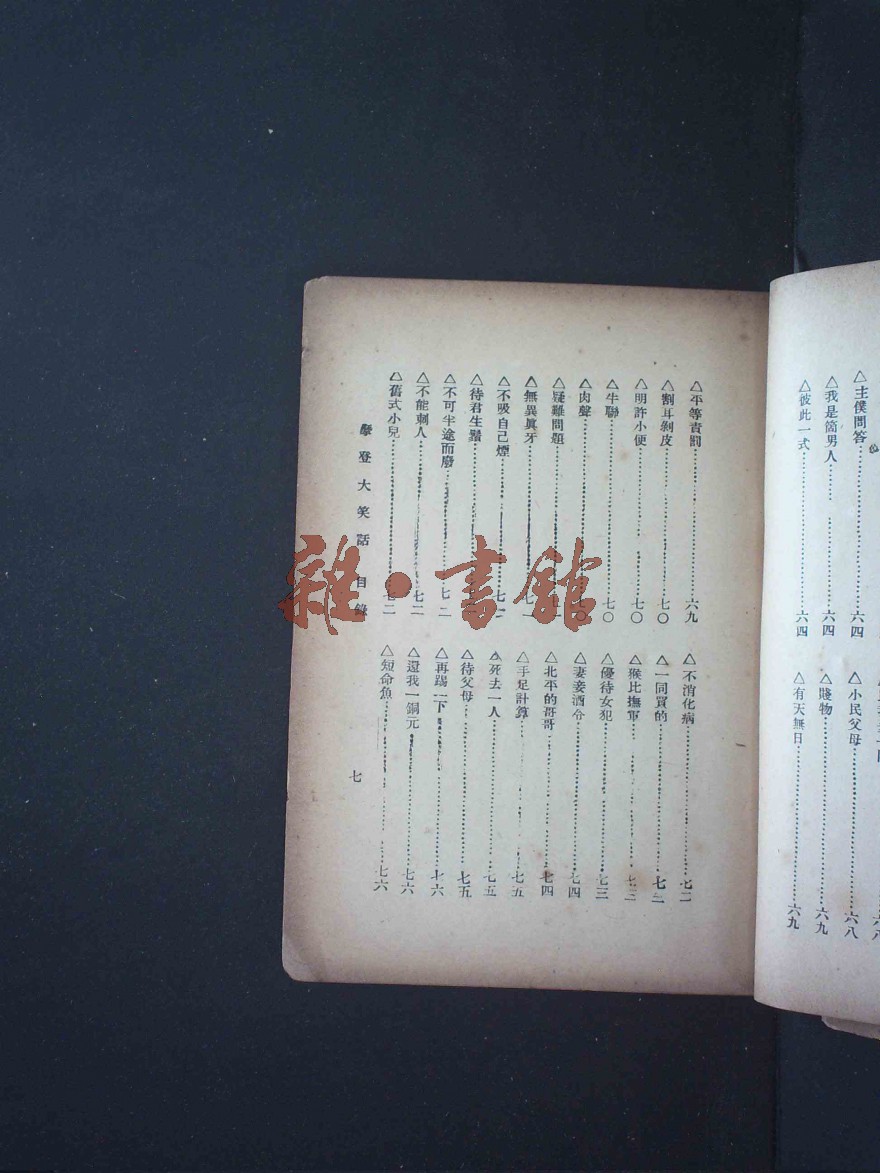 △主僕問答……六四
△我是箇男人……六四
△彼此一式……六四
△小民父母……六八
△賤物……六九
△有天無日……六九
△平等責罰……六九
△割耳剝皮……七〇
△明許小便……七〇
△牛聯……七〇
△肉聲……七〇
△疑難問題……七一
△無異眞牙……七一
△不吸自己煙……七一
△待君生鬚……七一
△不可半途而廢……七二
△不能刺人……七二
△舊式小兒……七二
△不消化病……七二
△一同買的……七三
△猴比撫軍……七三
△優待女犯……七三
△妻妾酒令……七四
△北平的哥哥……七四
△手足計算……七五
△死去一人……七五
△待父母……七五
△再踢一下……七六
△還我一銅元……七六
△短命魚……七六
摩登大笑話 目錄
七
雜·書館